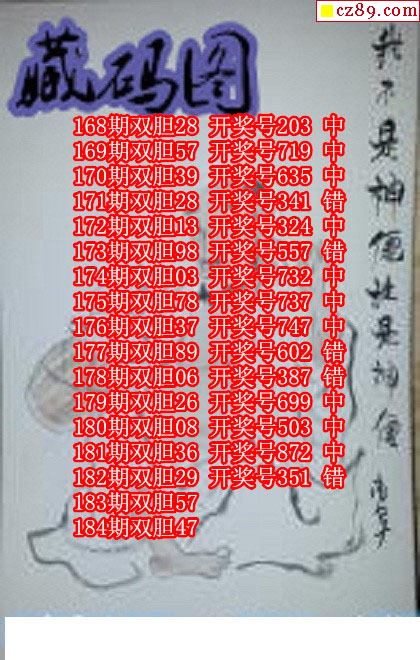 cz89.com
藏码图
168期双胆28 开奖号203 中
169期双胆57 开奖号719 中
170期双胆39 开奖号635 中
171期双胆28 开奖号341 错
172期双胆13 开奖号324 中
173期双胆98 开奖号557 错
174期双胆03 开奖号732 中
175期双胆78 开奖号737 中
176期双胆37 开奖号747 中
177期双胆89 开奖号602 错
178期双胆06 开奖号387 错
179期双胆26 开奖号699 中
180期双胆08 开奖号503 中
181期双胆36 开奖号872 中
182期双胆29 开奖号351 错
183期双胆57
184期双胆47
我不是神